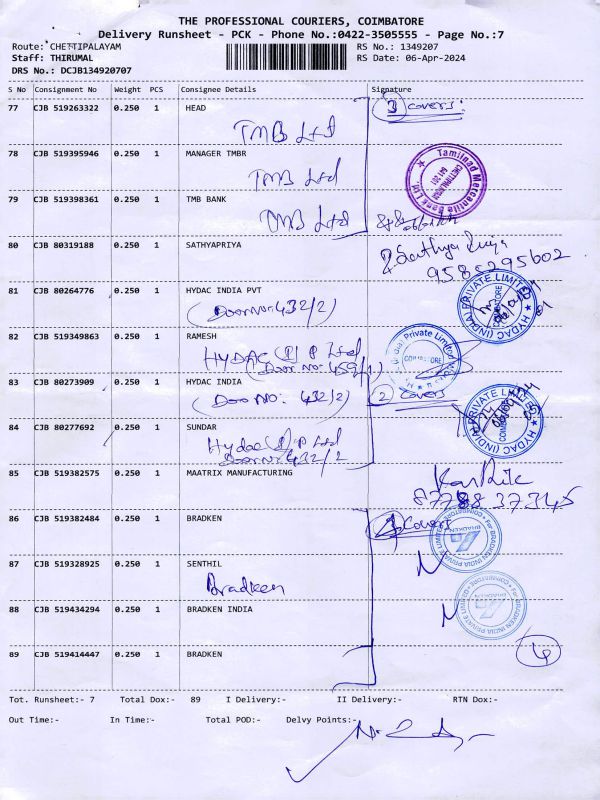 THE PROFESSIONAL COURIERS, COIMBATORE
Delivery Runsheet - PCK - Phone No.:0422-3505555 - Page No.:7
Route: CHETTIPALAYAM RS No.: 1349207
Staff: THIRUMAL RS Date: 06-Apr-2024
DRS No.: DCJB134920707
S No Consignment No Weight PCS Consignee Details Signature
77 CJB 519263322 0.250 1 HEAD 3 covers
TMB Ltd
78 CJB 519395946 0.250 1 MANAGER TMBR
TMB Ltd
Tamilnad Mercantile Bank Ltd
79 CJB 519398361 0.250 1 TMB BANK
TMB Ltd
80 CJB 80319188 0.250 1 SATHYAPRIYA
81 CJB 80264776 0.250 1 HYDAC INDIA PVT
(Door No: 432/2)
HYDAC (INDIA) PRIVATE LIMITED
COIMBATORE
82 CJB 519349863 0.250 1 RAMESH
HYDAC (I) P Ltd
(Door No: 459/1)
83 CJB 80273909 0.250 1 HYDAC INDIA
(Door No: 432/2) 2 covers
HYDAC (INDIA) PRIVATE LIMITED
COIMBATORE
84 CJB 80277692 0.250 1 SUNDAR
Hydac (I) P Ltd
Door No: 432/2
85 CJB 519382575 0.250 1 MAATRIX MANUFACTURING
Karthik
86 CJB 519382484 0.250 1 BRADKEN
For BRADKEN INDIA PRIVATE LIMITED
87 CJB 519328925 0.250 1 SENTHIL
Bradken
88 CJB 519434294 0.250 1 BRADKEN INDIA
For BRADKEN INDIA PRIVATE LIMITED
89 CJB 519414447 0.250 1 BRADKEN 4
Tot. Runsheet:- 7 Total Dox:- 89 I Delivery:- II Delivery:- RTN Dox:-
Out Time:- In Time:- Total POD:- Delvy Points:-